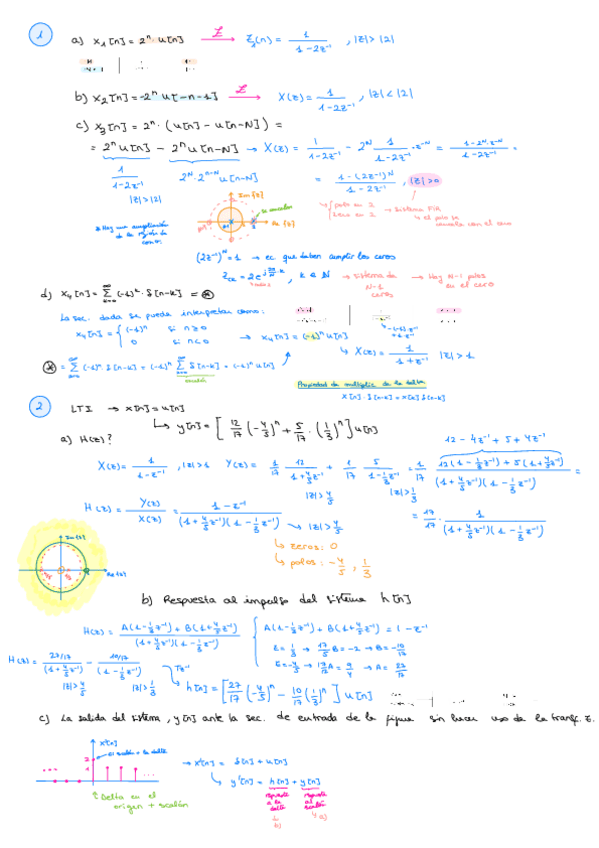 1
a) x₁[n] = 2ⁿ · u[n] → Z₁(n) = 1/(1-2z⁻¹) , |z| > |2|
b) x₂[n] = -2ⁿ u[-n-1] → X(z) = 1/(1-2z⁻¹) , |z| < |2|
c) x₃[n] = 2ⁿ · (u[n] - u[n-N]) =
= 2ⁿ u[n] - 2ⁿ u[n-N] → X(z) = 1/(1-2z⁻¹) - 2ᴺ 1/(1-2z⁻¹) · z⁻ᴺ = (1-2ᴺ·z⁻ᴺ)/(1-2z⁻¹) =
1/(1-2z⁻¹) 2ᴺ · 2ⁿ⁻ᴺ u[n-N] = (1-(2z⁻¹)ᴺ)/(1-2z⁻¹) , |z| > 0
|z| > |2|
Im{z}
Re{z}
se cancelan
* Hay una ampliación de la región de conv.
polo en 2
cero en 2
→ Sistema FIR
el polo se cancela con el cero
(2z⁻¹)ᴺ = 1 → ec que deben cumplir los ceros
→ Sistema de N-1 ceros → Hay N-1 polos en el cero
d) x₄[n] = Σ (-1)ᵏ · δ[n-k] =
La sec. dada se puede interpretar como:
x₄[n] = { (-1)ⁿ si n ≥ 0
0 si n < 0
→ x₄[n] = (-1)ⁿ u[n]
X(z) = 1/(1+z⁻¹) |z| > 1
= Σ (-1)ⁿ · δ[n-k] = (-1)ⁿ Σ δ[n-k] = (-1)ⁿ u[n]
escalón
Propiedad de multiplic. de la delta
x[n] · δ[n-k] = x[k] δ[n-k]
2
LTI → x[n] = u[n]
↳ y[n] = [12/17 (-4/5)ⁿ + 5/17 · (1/3)ⁿ] u[n]
a) H(z)?
12 - 4z⁻¹ + 5 + 4z⁻¹
X(z) = 1/(1-z⁻¹) , |z| > 1 Y(z) = 1/17 12/(1+4/5 z⁻¹) + 1/17 5/(1-1/3 z⁻¹) = 1/17 (12(1-1/3 z⁻¹) + 5(1+4/5 z⁻¹))/((1+4/5 z⁻¹)(1-1/3 z⁻¹)) =
|z| > 4/5 |z| > 1/3
H(z) = Y(z)/X(z) = (1-z⁻¹)/((1+4/5 z⁻¹)(1-1/3 z⁻¹)) → |z| > 4/5
= 17/17 · 1/((1+4/5 z⁻¹)(1-1/3 z⁻¹))
↳ zeros: 0
↳ polos: -4/5 , 1/3
Im{z}
Re{z}
b) Respuesta al impulso del sistema h[n]
H(z) = (A(1-1/3 z⁻¹) + B(1+4/5 z⁻¹))/((1+4/5 z⁻¹)(1-1/3 z⁻¹)) { A(1-1/3 z⁻¹) + B(1+4/5 z⁻¹) = 1 - z⁻¹
z = 1/3 → 17/5 B = -2 → B = -10/17
z = -4/5 → 17/12 A = 9/4 → A = 27/17
H(z) = (27/17)/(1+4/5 z⁻¹) - (10/17)/(1-1/3 z⁻¹)
|z| > 4/5 |z| > 1/3
TZ⁻¹
h[n] = [27/17 (-4/5)ⁿ - 10/17 (1/3)ⁿ] u[n]
c) La salida del sistema, y[n] ante la sec. de entrada de la figura sin hacer uso de la transf. Z.
x'[n]
el escalón + la delta
2
1
↑ Delta en el origen + escalón
→ x'[n] = δ[n] + u[n]
↳ y'[n] = h[n] + y[n]
respuesta a la delta
respuesta al escalón
b)
a)